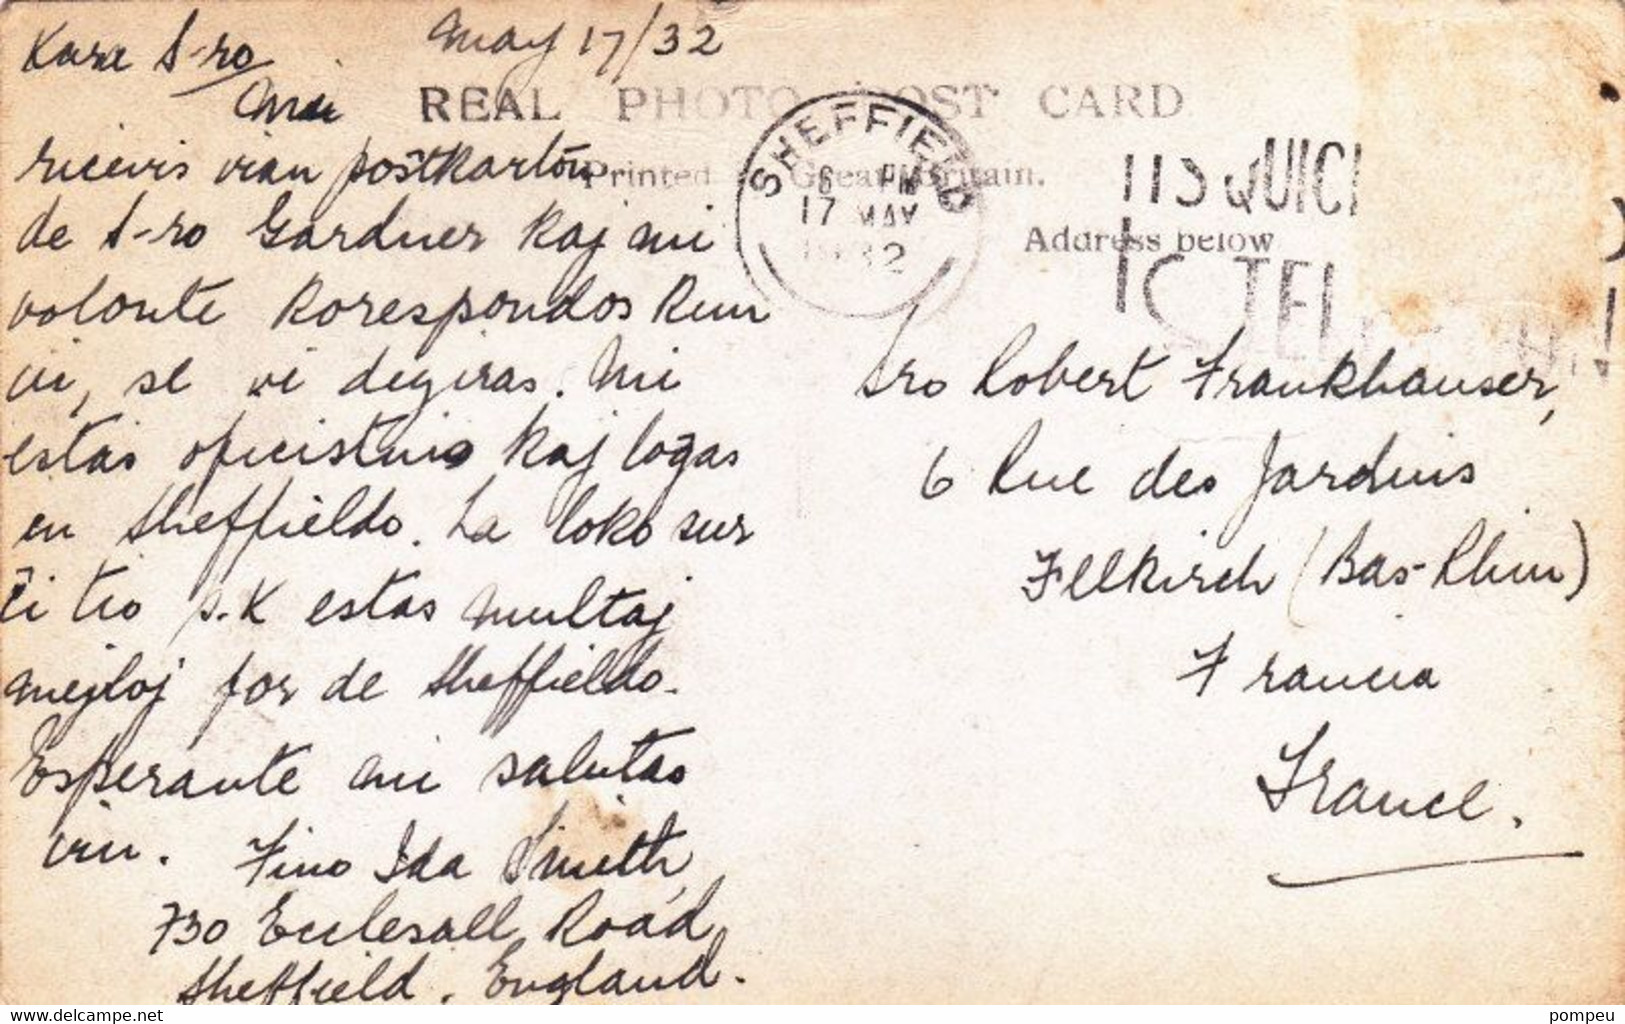 Kara S-ro
May 17/32
REAL PHOTO POST CARD
Mi
Printed Great Britain.
Address below
SHEFFIELD
6 PM
17 MAY
1932
ricevis vian postkarton
de S-ro Gardner kaj mi
volonte korespondos kun
vi, se vi deziras. Mi
estas oficistino kaj loĝas
en Sheffieldo. La loko sur
ĉi tio p.K estas multaj
mejloj for de Sheffieldo.
Esperante mi salutas
vin. Fino Ida Smith,
730 Ecclesall Road,
Sheffield, England.
Sro Robert Frankhauser,
6 Rue des Jardins
Illkirch (Bas-Rhin)
Francia
France.
www.delcampe.net
pompeu